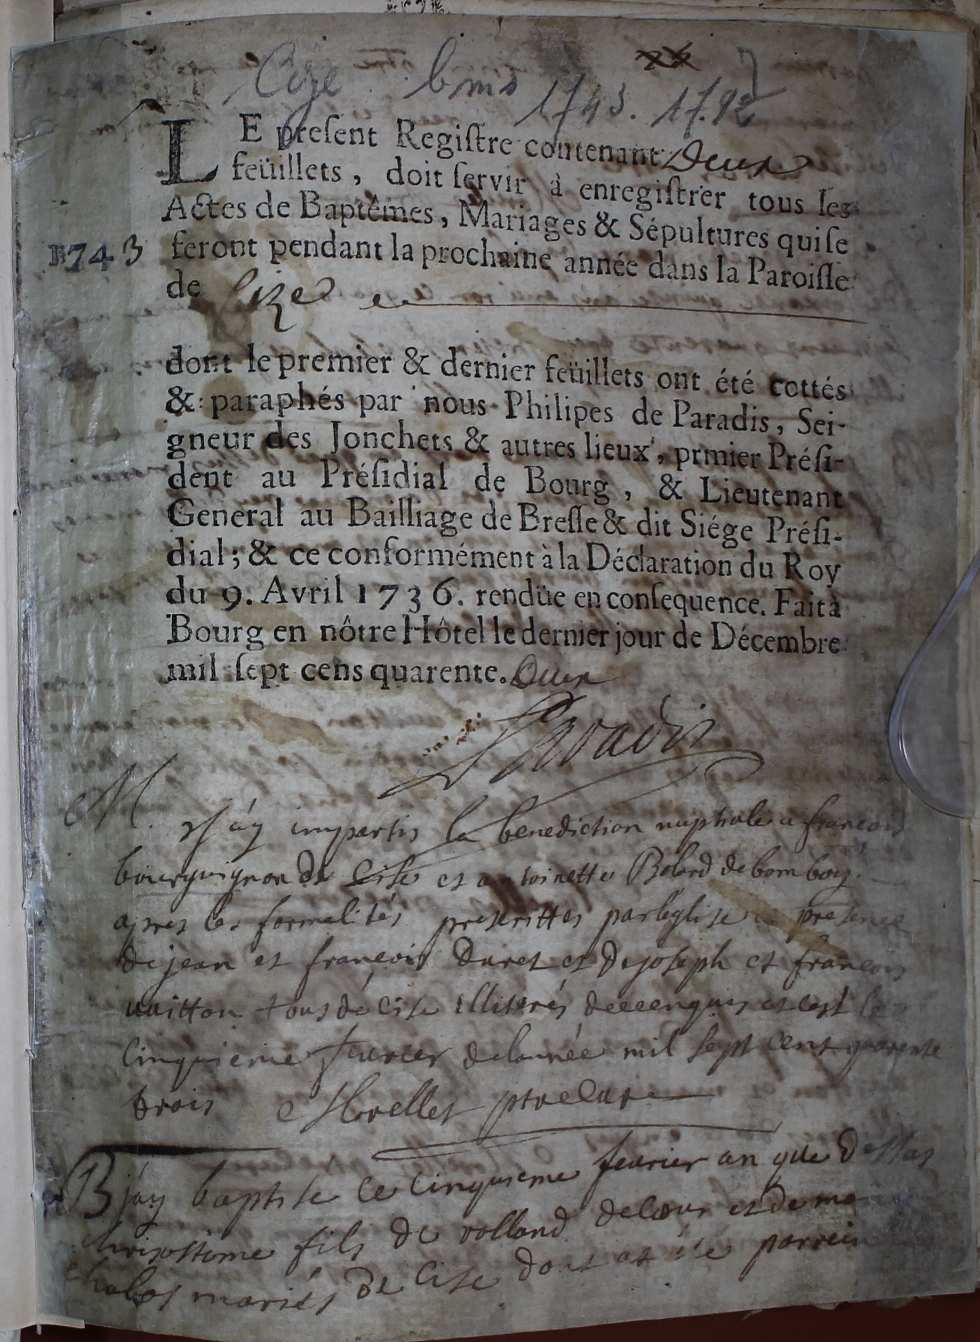 Cize bms 1743. 1792
LE present Registre contenant Deux
feüillets, doit servir à enregistrer tous les
Actes de Baptêmes, Mariages & Sépultures qui se
1743
feront pendant la prochaine année dans la Paroisse
de Cize
dont le premier & dernier feüillets ont été cottés
& paraphés par nous Philipes de Paradis, Sei-
gneur des Jonchets & autres lieux, prmier Prési-
dent au Présidial de Bourg, & Lieutenant
General au Bailliage de Bresse & dit Siége Prési-
dial; & ce conformément à la Déclaration du Roy
du 9. Avril 1736. rendüe en consequence. Fait à
Bourg en nôtre Hôtel le dernier jour de Décembre
mil sept cens quarente. Deux
Paradis
M. J'ay impartis la benediction nuptiale a francois
bourguignon de Cise et antoinette Bolard de bombois
apres les formalités prescrittes par leglise en presence
de jean et francois Duret et de joseph et francois
vuitton tous de cise illiterés de ce enquis et cest le
cinquieme fevrier de lannée mil sept cent quarente
trois Morellet ptre Cure
B jay baptise ce cinquieme fevrier an que dessus
chrisostome fils de rolland delœur et de
mariés de Cise dont at été parrein